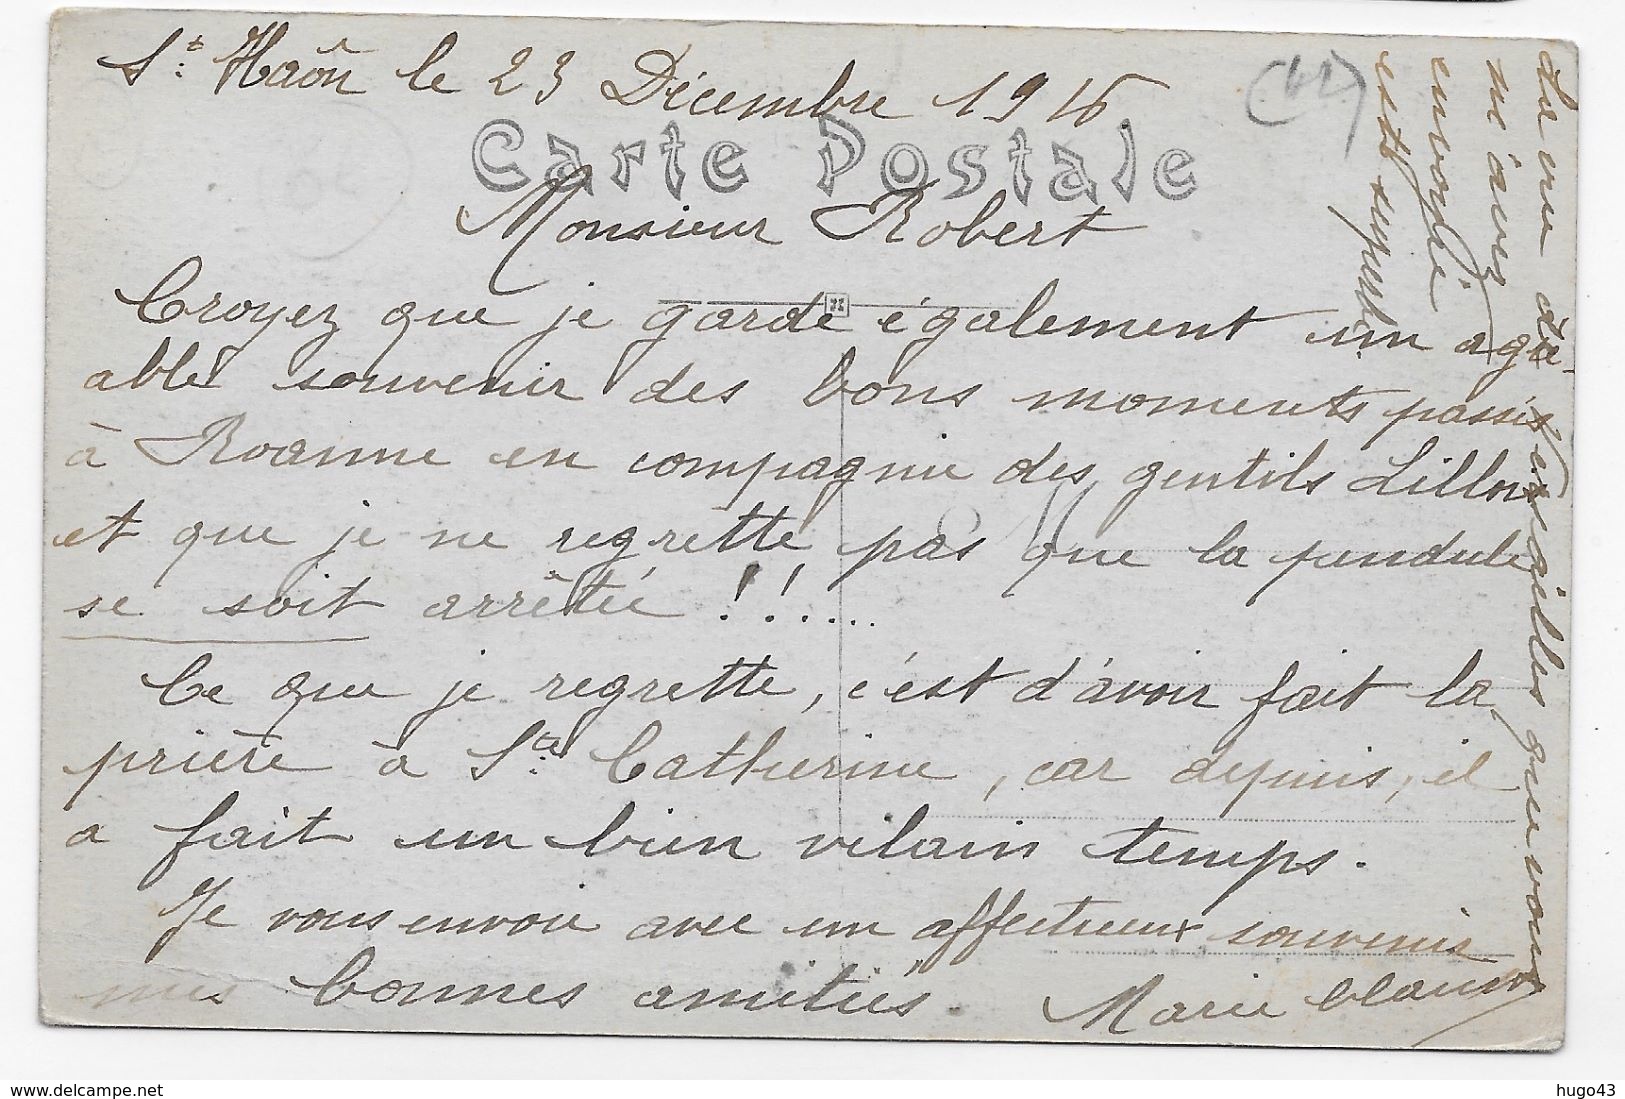 St. Haôn le 23 Décembre 1916
Carte Postale
Monsieur Robert
Croyez que je garde également un agré-
able souvenir des bons moments passés
à Roanne en compagnie des gentils Lillois
et que je ne regrette pas que la pendule
se soit arrêtée !!.....
Ce que je regrette, c'est d'avoir fait la
prière à Ste. Catherine, car depuis, il
a fait un bien vilain temps.
Je vous envoie avec un affectueux souvenir
mes bonnes amitiés. Marie
La vue de Versailles que vous
m'avez
envoyée
est superbe
hugo43